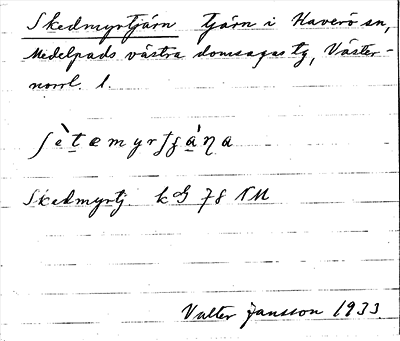 Skedmyrtjärn tjärn i Haverö sn,
Medelpads västra domsagas tg, Väster-
norrl. l.
Skedmyrtj. kG 78 NM
Valter Jansson 1933